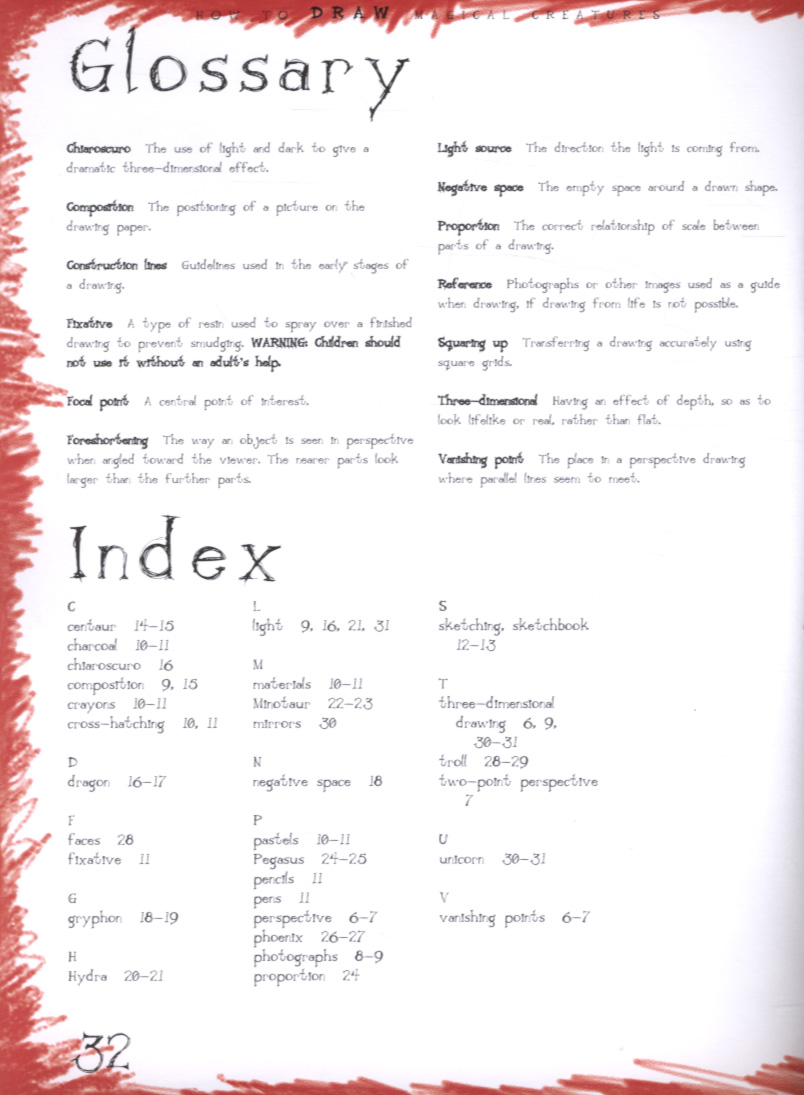 HOW TO DRAW MAGICAL CREATURES
Glossary
Chiaroscuro The use of light and dark to give a
dramatic three-dimensional effect.
Composition The positioning of a picture on the
drawing paper.
Construction lines Guidelines used in the early stages of
a drawing.
Fixative A type of resin used to spray over a finished
drawing to prevent smudging. WARNING: Children should
not use it without an adult's help.
Focal point A central point of interest.
Foreshortening The way an object is seen in perspective
when angled toward the viewer. The nearer parts look
larger than the further parts.
Light source The direction the light is coming from.
Negative space The empty space around a drawn shape.
Proportion The correct relationship of scale between
parts of a drawing.
Reference Photographs or other images used as a guide
when drawing, if drawing from life is not possible.
Squaring up Transferring a drawing accurately using
square grids.
Three-dimensional Having an effect of depth, so as to
look lifelike or real, rather than flat.
Vanishing point The place in a perspective drawing
where parallel lines seem to meet.
Index
C
centaur 14-15
charcoal 10-11
chiaroscuro 16
composition 9, 15
crayons 10-11
cross-hatching 10, 11
D
dragon 16-17
F
faces 28
fixative 11
G
gryphon 18-19
H
Hydra 20-21
L
light 9, 16, 21, 31
M
materials 10-11
Minotaur 22-23
mirrors 30
N
negative space 18
P
pastels 10-11
Pegasus 24-25
pencils 11
pens 11
perspective 6-7
phoenix 26-27
photographs 8-9
proportion 24
S
sketching, sketchbook
12-13
T
three-dimensional
drawing 6, 9,
30-31
troll 28-29
two-point perspective
7
U
unicorn 30-31
V
vanishing points 6-7
32